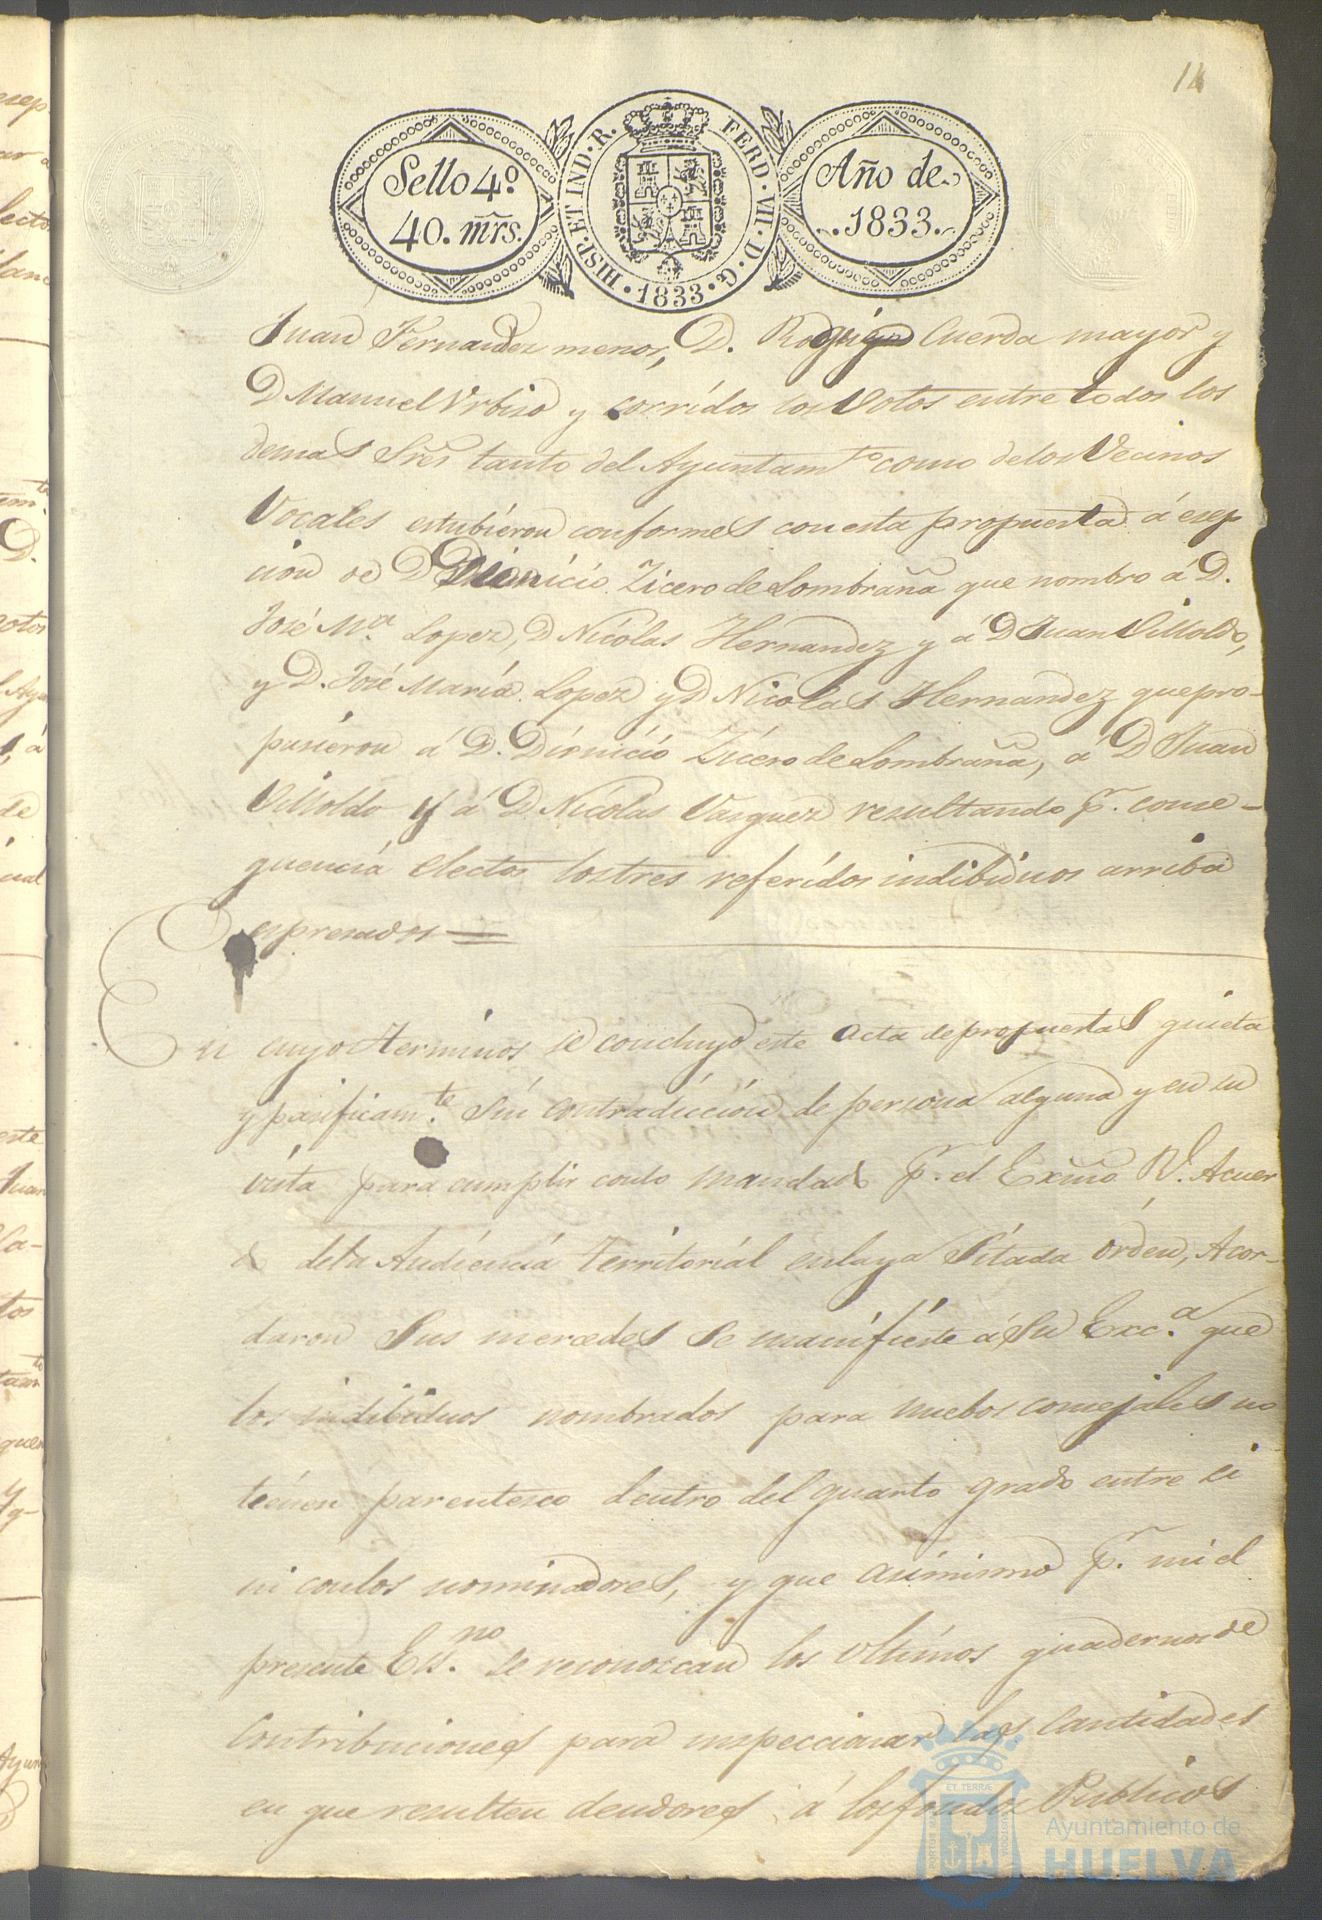 14
Sello 4º
40. mrs.
HISP. ET IND. R. FERD. VII. D. G. 1833
Año de
1833
Juan Fernandez menor, D. Rodrigo Cuerda mayor y
D Manuel Urbino y corridos los Votos entre todos los
demas Sres tanto del Ayuntamto como delos Vecinos
Vocales estubieron conformes con esta propuesta á esep
cion de D Dionicio Zicero de Lombraña que nombro á D.
José Ma. Lopez, D Nicolas Hernandez y á D Juan Villoldo,
y D. José María Lopez y D Nicolas Hernandez que pro-
pusieron á D. Dionicio Zicero de Lombraña, á D Juan
Villoldo y á D Nicolas Vazquez resultando pr. conse-
quencia electos los tres referidos indibiduos arriba
espresados
En cuyos terminos se concluyó este acta de propuestas quieta
y pasificamte. sin contradiccion de persona alguna y en su
vista para cumplir conlo mandado pr. el Exmo Rl. Acuer
do dela Audiencia Territorial enla ya Sitada orden, Acor-
daron Sus mercedes se manifieste á Su Exca. que
los indibiduos nombrados para nuebos consejales no
tienen parentesco dentro del quarto grado entre si
ni conlos nominadores, y que asimismo pr. mi el
presente Esno. se reconozcan los ultimos quadernos de
Contribuciones para inspeccionar las Cantidades
en que resulten deudores á los fondos Publicos
Ayuntamiento de
HUELVA